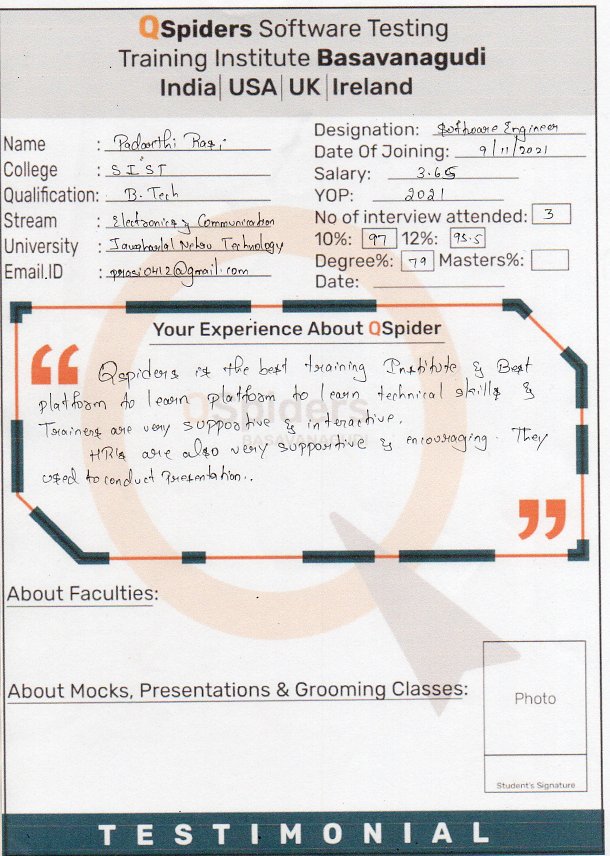 QSpiders Software Testing
Training Institute Basavanagudi
India| USA| UK| Ireland
Name : Padarthi Rasi
College : SI'ST
Qualification: B. Tech
Stream : Electronics & Communication
University : Jawaharlal Nehru Technology
Email.ID : prasi0412@gmail.com
Designation: Software Engineer
Date Of Joining: 9/11/2021
Salary: 3.65
YOP: 2021
No of interview attended: 3
10%: 97 12%: 93.5
Degree%: 79 Masters%:
Date:
Your Experience About QSpider
“
Qspiders is the best training Institute & Best
platform to learn platform to learn technical skills &
Trainers are very supportive & interactive.
HR's are also very supportive & encouraging. They
used to conduct Presentation..
”
QSpiders
BASAVANAGUDI
About Faculties:
About Mocks, Presentations & Grooming Classes:
Photo
Student's Signature
TESTIMONIAL